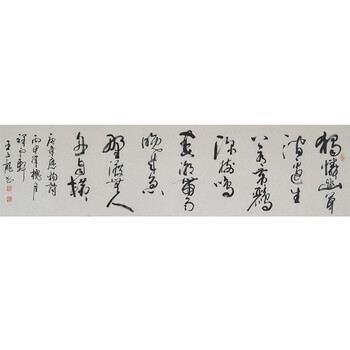 獨憐幽草
澗邊生
上有黄鸝
深樹鳴
春潮帶雨
晚來急
野渡無人
舟自横
唐韋應物詩
丙申年月
王